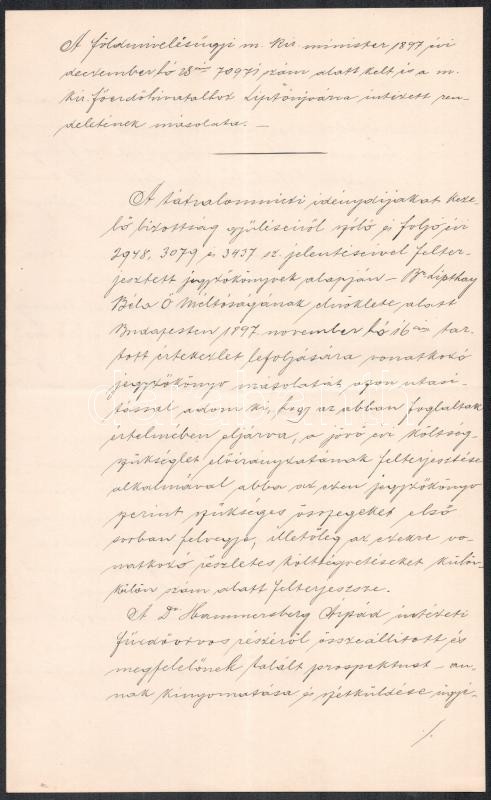 A földmivelésügyi m. kir. minister 1897 évi
deczember hó 28án 70971 szám alatt kelt és a m.
kir. főerdőhivatalhoz Liptóujvárra intézett ren-
deletének másolata. —
A tátralomniczi idénydíjakat keze-
lő bizottság gyüléseiről szóló és folyó évi
2948, 3079 és 3437 sz. jelentéseivel felter-
jesztett jegyzőkönyvek alapján — Br. Lipthay
Béla Ő Méltóságának elnöklete alatt
Budapesten 1897 november hó 16án tar-
tott értekezlet lefolyására vonatkozó
jegyzőkönyv másolatát azon utasi-
tással adom ki, hogy az abban foglaltak
értelmében eljárva, a jövő évi költség-
szükséglet előirányzatának felterjesztése
alkalmával abba az ezen jegyzőkönyv
szerint szükséges összegeket első
sorban felvegye, illetőleg az ezekre vo-
natkozó részletes költségvetéseket külön-
külön szám alatt felterjessze.
A Dr Hammersberg Árpád intézeti
fürdőorvos részéről összeállitott és
megfelelőnek talált prospektust — an-
nak kinyomatása és szétküldése ügyé-
./.